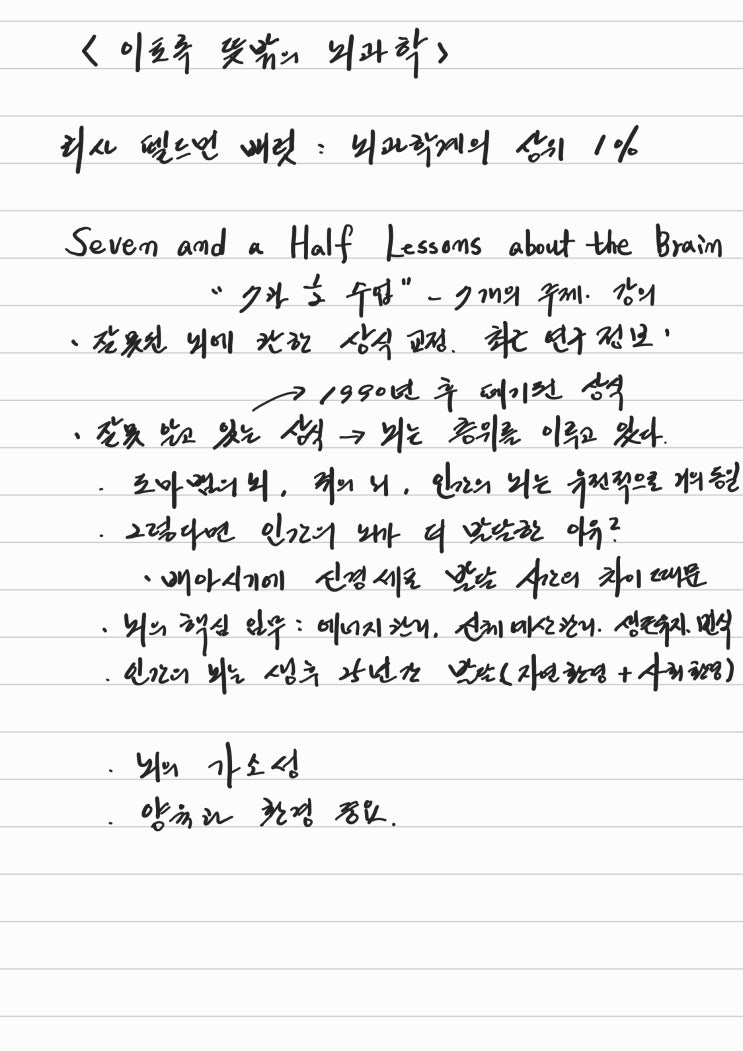 < 이토록 뜻밖의 뇌과학 >
리사 펠드먼 배럿 : 뇌과학계의 상위 1%
Seven and a Half Lessons about the Brain
“ 7과 ½ 수업” – 7개의 주제. 강의
· 잘못된 뇌에 관한 상식 교정. 최근 연구 정보.
→ 1990년 후 폐기된 상식
· 잘못 알고 있는 상식 → 뇌는 층위를 이루고 있다.
· 도마뱀의 뇌, 쥐의 뇌, 인간의 뇌는 유전적으로 거의 동일
· 그렇다면 인간의 뇌가 더 발달한 이유?
· 배아시기에 신경세포 발달 시간의 차이 때문
· 뇌의 핵심 임무 : 에너지관리, 신체예산관리. 생존유지. 번식
· 인간의 뇌는 생후 25년간 발달(자연환경 + 사회환경)
· 뇌의 가소성
· 양육과 환경 중요.